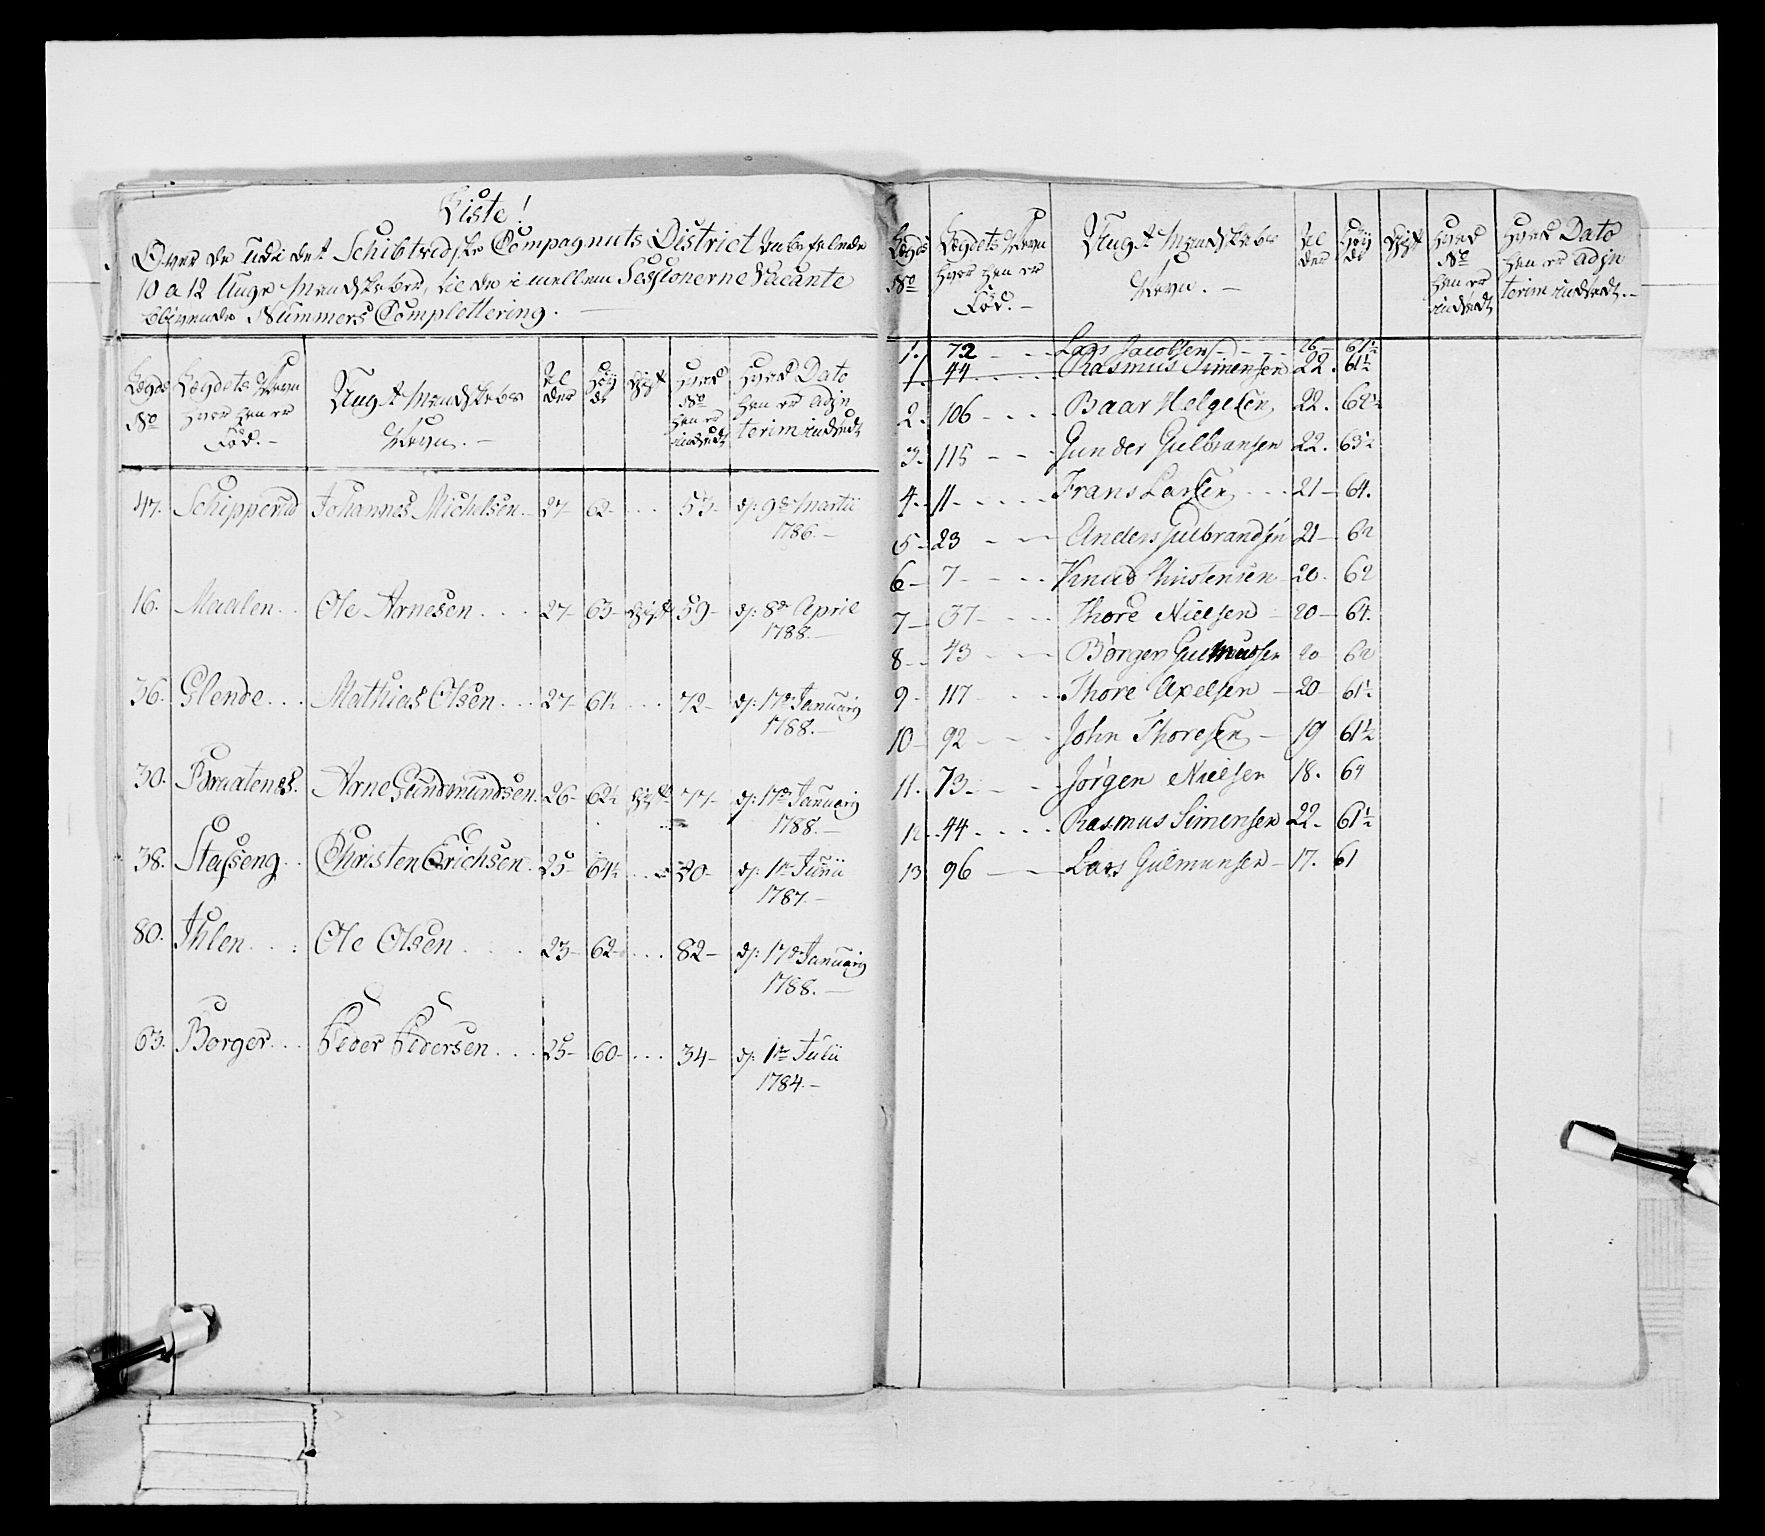 Liste!
Over de udi det Schibtvedtske Compagniets District anbefalende
10 a 12 Unge Mandskaber, til de imellem Sessionerne Vacante
blivende Nummers Complettering. —
Lægds No
Lægdets Navn hvor han er Fød. —
Ungt Mandskabs Navn. —
Alder
Høyde
Gift
Hvad No han er indsadt
Hvad Dato han er adjnterim indsadt
47. Schipperud Johannes Michelsen 27– 62– . . . 53– d: 9de Martii
1786. —
16. Maalen . . Ole Arnesen . . . 27– 63– Gift 59– d: 8de April
1788. —
36. Glende . . . Mathias Olsen . . . 27– 61½ . . . 72– d: 17de Januarij
1788. —
30. Braatenes. Arne Gundmundsen. 26– 62½ Gift 77– d: 17de Januarij
1788. —
38. Stafseng . . Christen Erichsen . 25– 64½ . . . 20– d: 1te Junii
1787. —
80. Ihlen . . . Ole Olsen . . . . 23– 62– . . . 82– d: 17de Januarij
1788. —
63. Borger . . . Peder Pedersen . . . 25– 60– . . . 34– d: 1te Julii
1784. —
Lægds No
Lægdets Navn hvor han er Fød. —
Ungt Mandskabs Navn. —
Alder
Høyde
Gift
Hvad No han er indsadt
Hvad Dato han er adjnterim indsadt. —
1. 72 – – Lars Jacobsen – – 26– 61½
1. 44 . . . . Rasmus Simensen 22. 61½
2. 106 – . . . Baar Helgesen 22. 62½
3. 115 – – Gunder Gulbransen 22. 63½
4. 11 – . . . . Frans Larsen . . . 21– 64.
5– 23 – – Anders Gulbrandsen 21– 62
6– 7– – – . . Knud Christensen – 20. 62
7– 37– . . . . Thore Nielsen – 20– 64.
8– 43 – – – Børger Gulmunsen 20 62
9– 117 – . . . Thore Axelsen – 20– 61½
10– 92 – – – John Thoresen – 19 61½
11. 73. – – – Jørgen Nielsen 18. 64
12. 44 . . . . Rasmus Simensen 22. 61½
13 96 — — Lars Gulmunsen – 17. 61